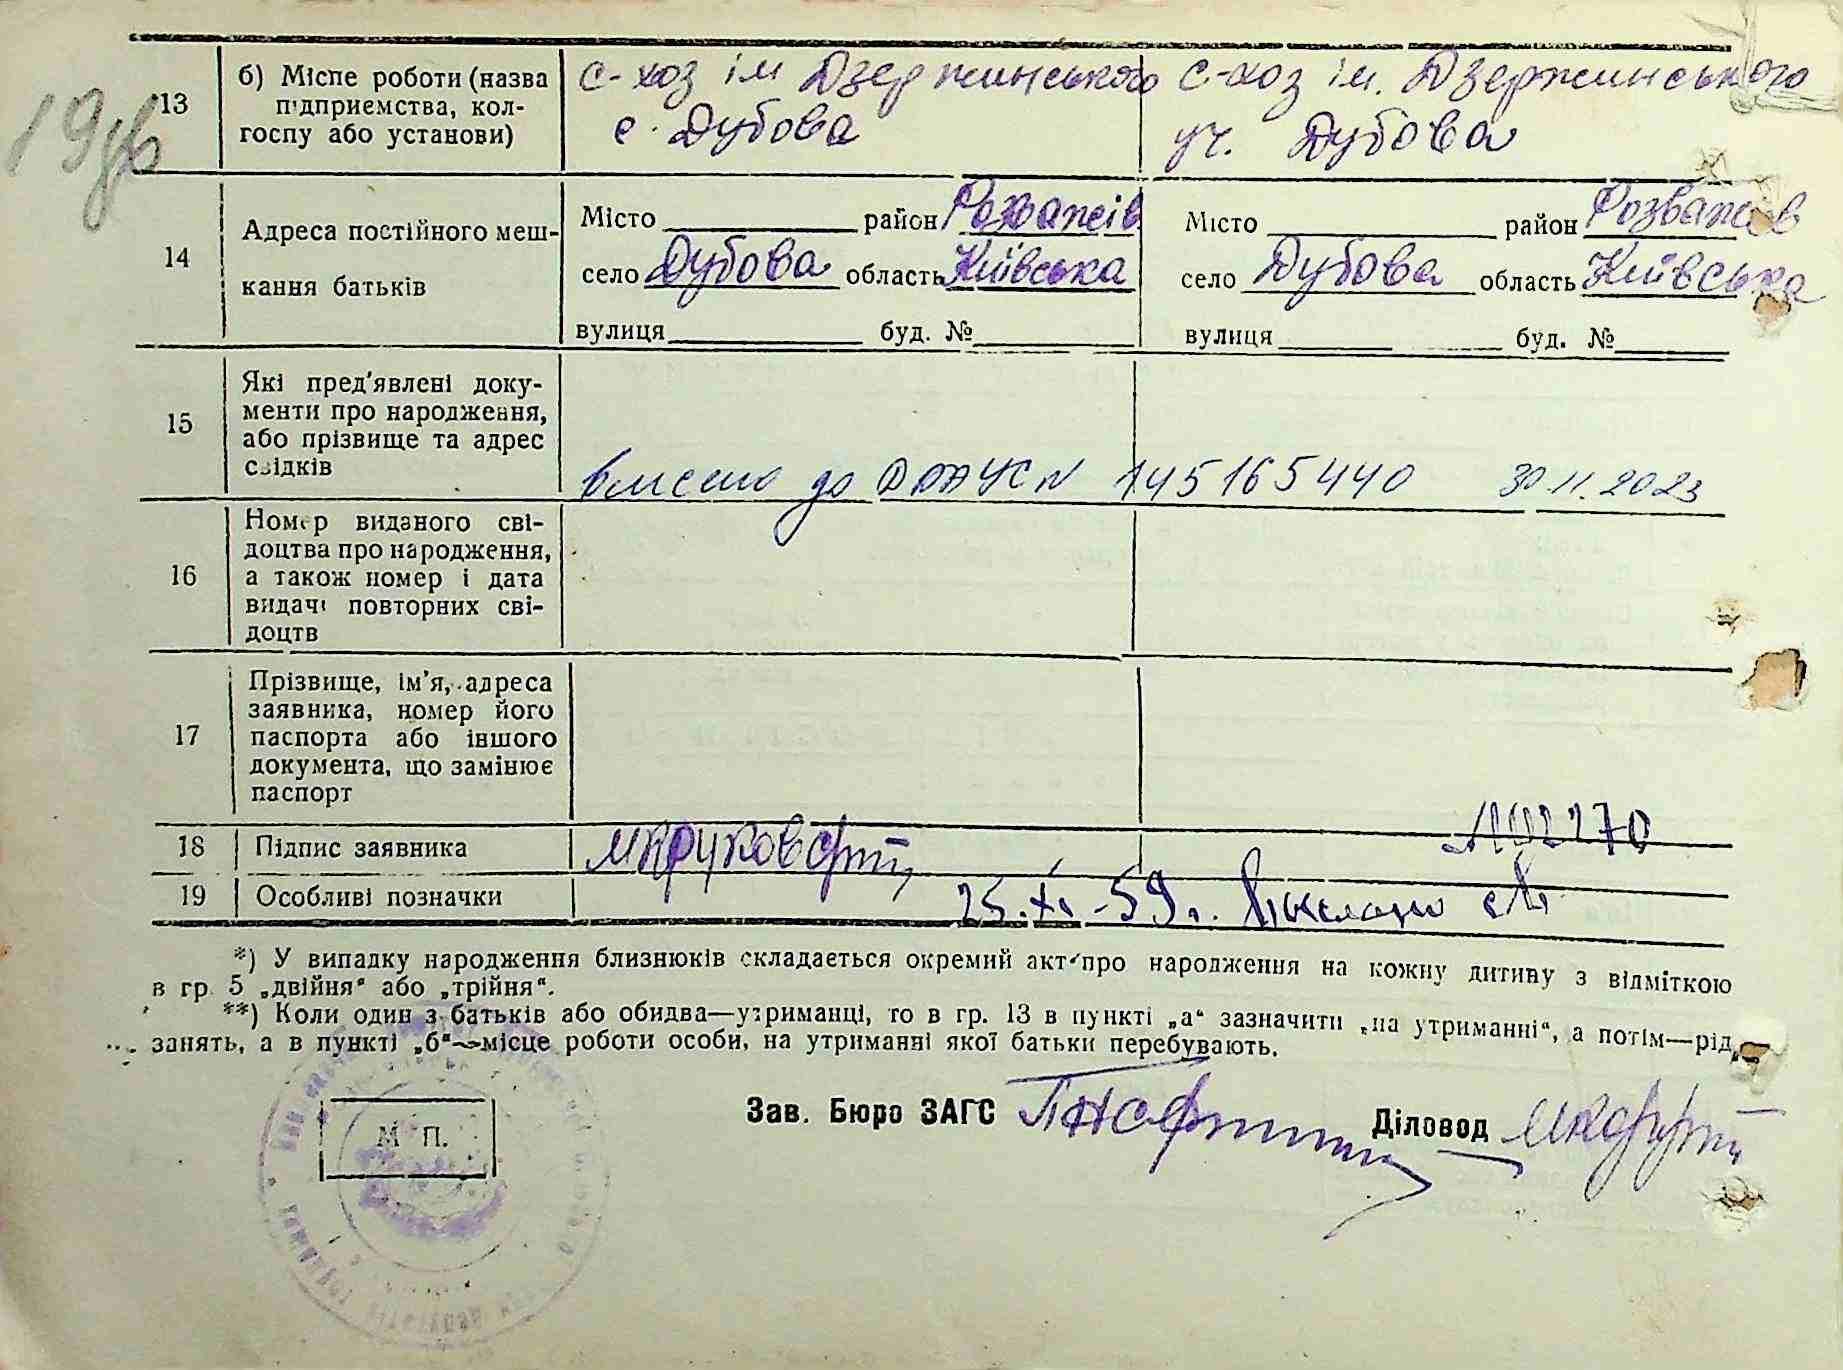 19
13 б) Місце роботи (назва підприємства, колгоспу або установи)
с-хоз ім Дзержинського с. Дубова
с-хоз ім. Дзержинського уч. Дубова
14 Адреса постійного мешкання батьків
Місто район Розважів
село Дубова область Київська
вулиця буд. №
Місто район Розважів
село Дубова область Київська
вулиця буд. №
15 Які пред'явлені документи про народження, або прізвище та адрес свідків
внесено до ДРАЦС N 145165440 30.11.2023
16 Номер виданого свідоцтва про народження, а також номер і дата видачі повторних свідоцтв
17 Прізвище, ім'я, адреса заявника, номер його паспорта або іншого документа, що замінює паспорт
18 Підпис заявника
19 Особливі позначки
25.XI-59 г.
*) У випадку народження близнюків складається окремий акт про народження на кожну дитину з відміткою
в гр. 5 „двійня“ або „трійня“.
**) Коли один з батьків або обидва—утриманці, то в гр. 13 в пункті „а“ зазначити „на утриманні“, а потім—рід
занять, а в пункті „б“—місце роботи особи, на утриманні якої батьки перебувають.
М П.
Зав. Бюро ЗАГС
Діловод